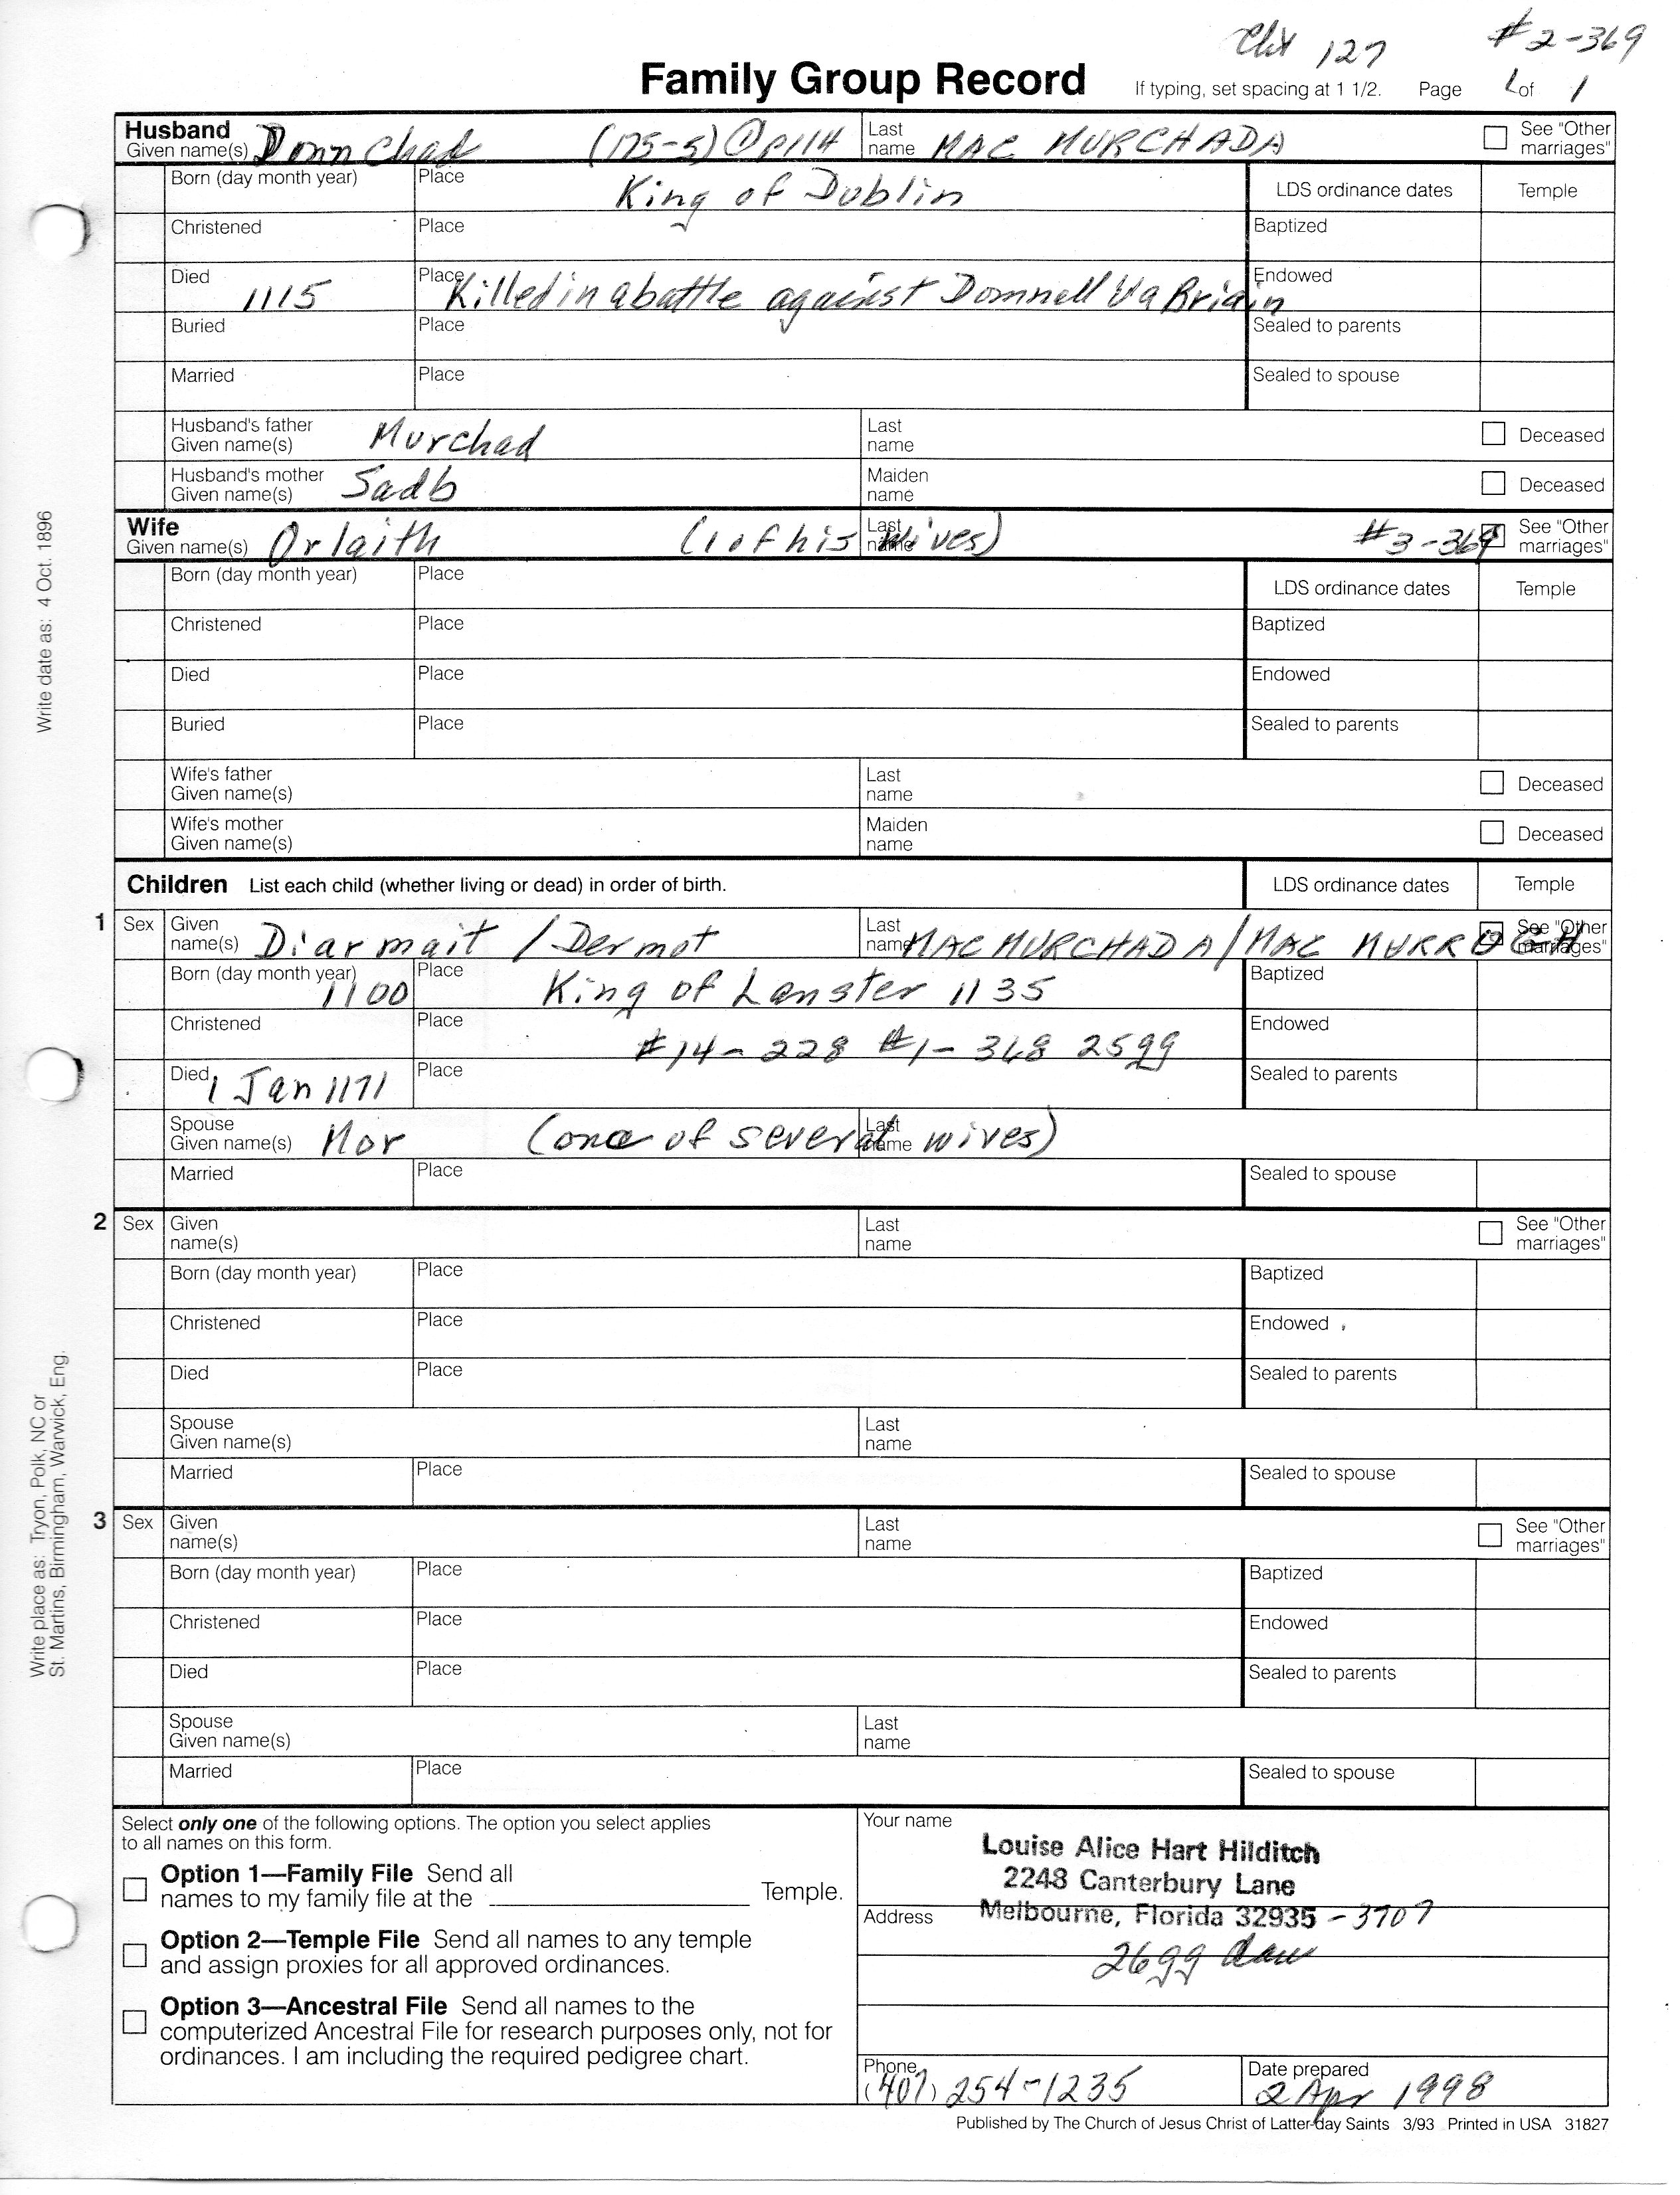 Cht 127 # 2-369
Family Group Record If typing, set spacing at 1 1/2. Page 1 of 1
Husband
Given name(s) Donnchad (175-5) @ p114 Last name MAC MURCHADA See "Other marriages"
Born (day month year) Place King of Dublin LDS ordinance dates Temple
Christened Place Baptized
Died 1115 Place Killed in a battle against Domnell Ua Briain Endowed
Buried Place Sealed to parents
Married Place Sealed to spouse
Husband's father Given name(s) Murchad Last name Deceased
Husband's mother Given name(s) Sadb Maiden name Deceased
Wife
Given name(s) Orlaith (1 of his wives) Last name #3-369 See "Other marriages"
Born (day month year) Place LDS ordinance dates Temple
Christened Place Baptized
Died Place Endowed
Buried Place Sealed to parents
Wife's father Given name(s) Last name Deceased
Wife's mother Given name(s) Maiden name Deceased
Children List each child (whether living or dead) in order of birth. LDS ordinance dates Temple
1 Sex Given name(s) Diarmait / Dermot Last name MAC MURCHADA/MAC MURROGH See "Other marriages"
Born (day month year) 1100 Place King of Lanster 1135 Baptized
Christened Place #14-228 #1-368 25gg Endowed
Died 1 Jan 1171 Place Sealed to parents
Spouse Given name(s) Mor (one of several wives) Last name
Married Place Sealed to spouse
2 Sex Given name(s) Last name See "Other marriages"
Born (day month year) Place Baptized
Christened Place Endowed
Died Place Sealed to parents
Spouse Given name(s) Last name
Married Place Sealed to spouse
3 Sex Given name(s) Last name See "Other marriages"
Born (day month year) Place Baptized
Christened Place Endowed
Died Place Sealed to parents
Spouse Given name(s) Last name
Married Place Sealed to spouse
Select only one of the following options. The option you select applies
to all names on this form.
Option 1—Family File Send all
names to my family file at the Temple.
Option 2—Temple File Send all names to any temple
and assign proxies for all approved ordinances.
Option 3—Ancestral File Send all names to the
computerized Ancestral File for research purposes only, not for
ordinances. I am including the required pedigree chart.
Your name
Louise Alice Hart Hilditch
2248 Canterbury Lane
Address Melbourne, Florida 32935 - 3707
26gg dau
Phone (407) 254-1235 Date prepared 2 Apr 1998
Published by The Church of Jesus Christ of Latter-day Saints 3/93 Printed in USA 31827
Write date as: 4 Oct. 1896
Write place as: Tryon, Polk, NC or
St. Martins, Birmingham, Warwick, Eng.